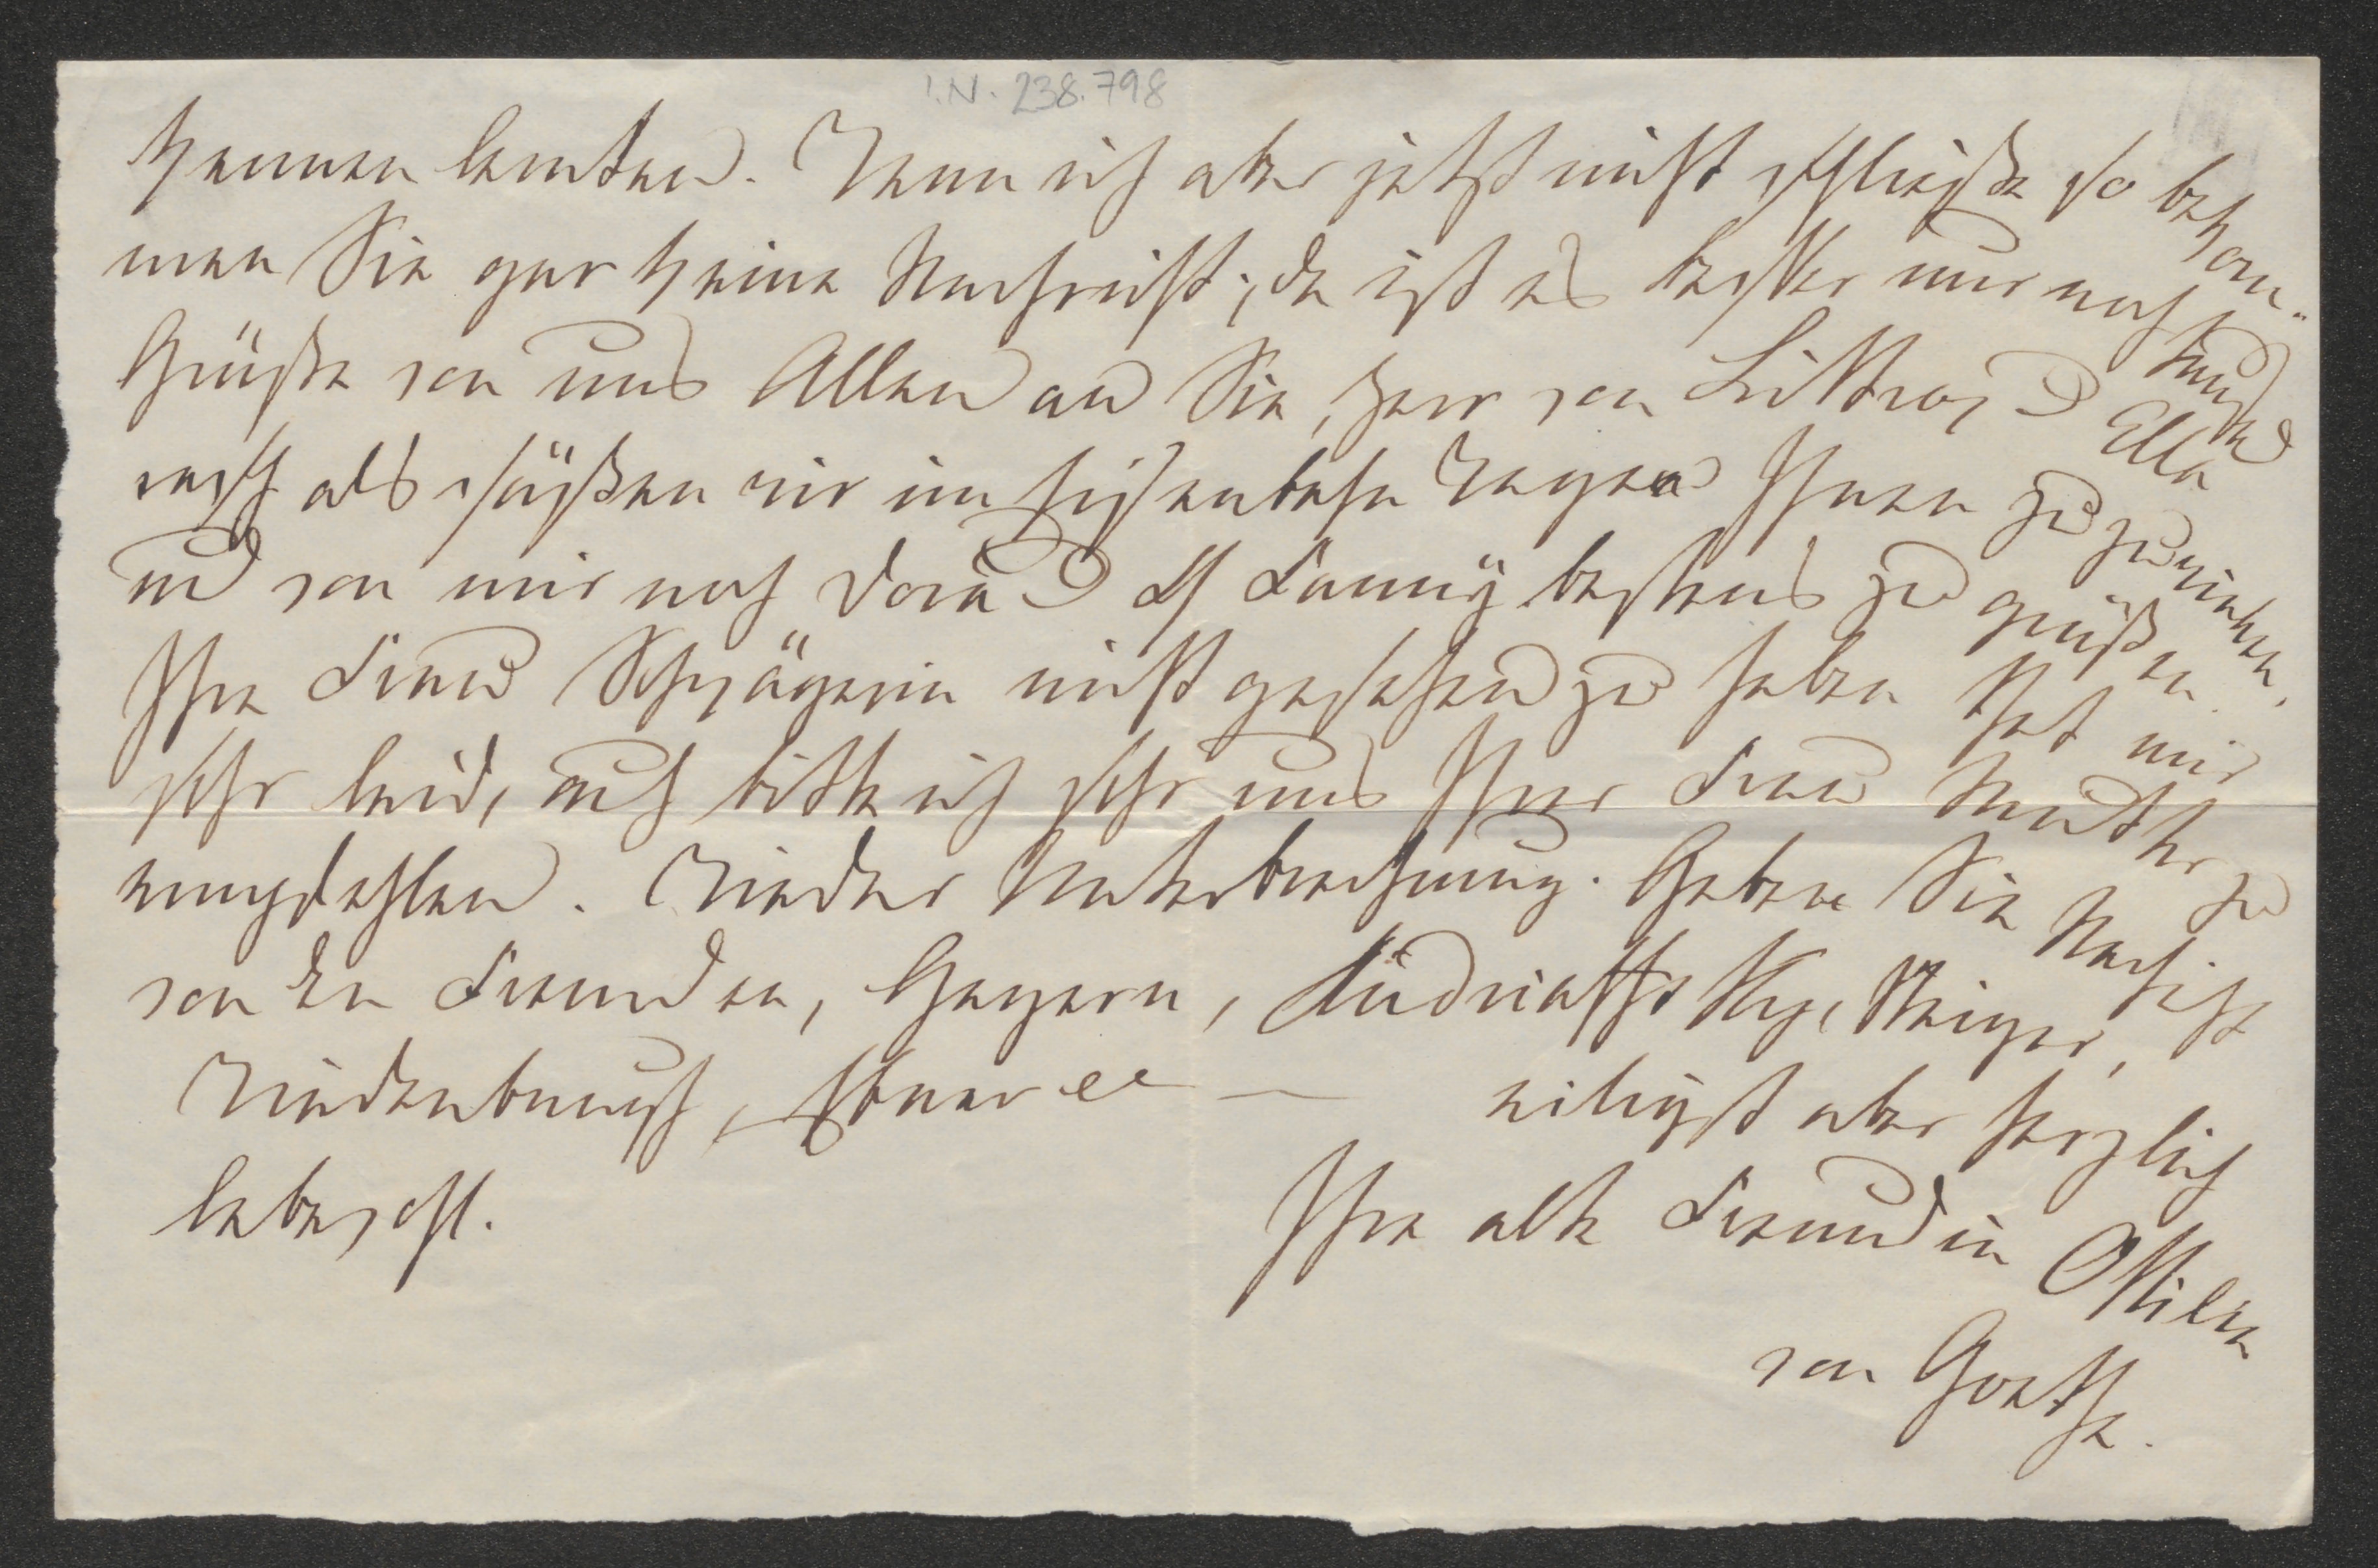 I.N. 238.798
kennen lernten. Wenn ich aber jetzt nicht schließe so bekom-
men Sie gar keine Nachricht; da ist es besser nur noch tausend
Grüße von uns Allen an Sie, Herr von Littrow u Ella
rasch als säßen wir im Eisenbahn Wagen Ihnen zu zu winken,
und von mir noch Dora u Fanny bestens zu grüßen.
Ihre Frau Schwägerin nicht gesehen zu haben that mir
sehr leid, auch bitte ich sehr uns Ihrer Frau Mutter zu
empfehlen. Wieder Unterbrechung. Geben Sie Nachricht
von den Freunden, Gagern,
Ebner
eiligst aber herzlich
lebewohl.
Ihre alte Freundin Ottilie
von Goethe.